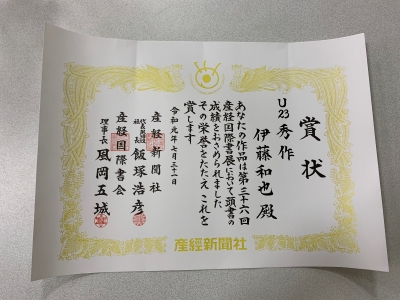 賞状
U23秀作
伊藤和也殿
あなたの作品は第三十六回
産経国際書展において頭書の
成績をおさめられました
その栄誉をたたえこれを
賞します
令和元年七月三十一日
産経新聞社
代表取締役
社長
飯塚浩彦
産経国際書会
理事長
風岡五城
産經新聞社